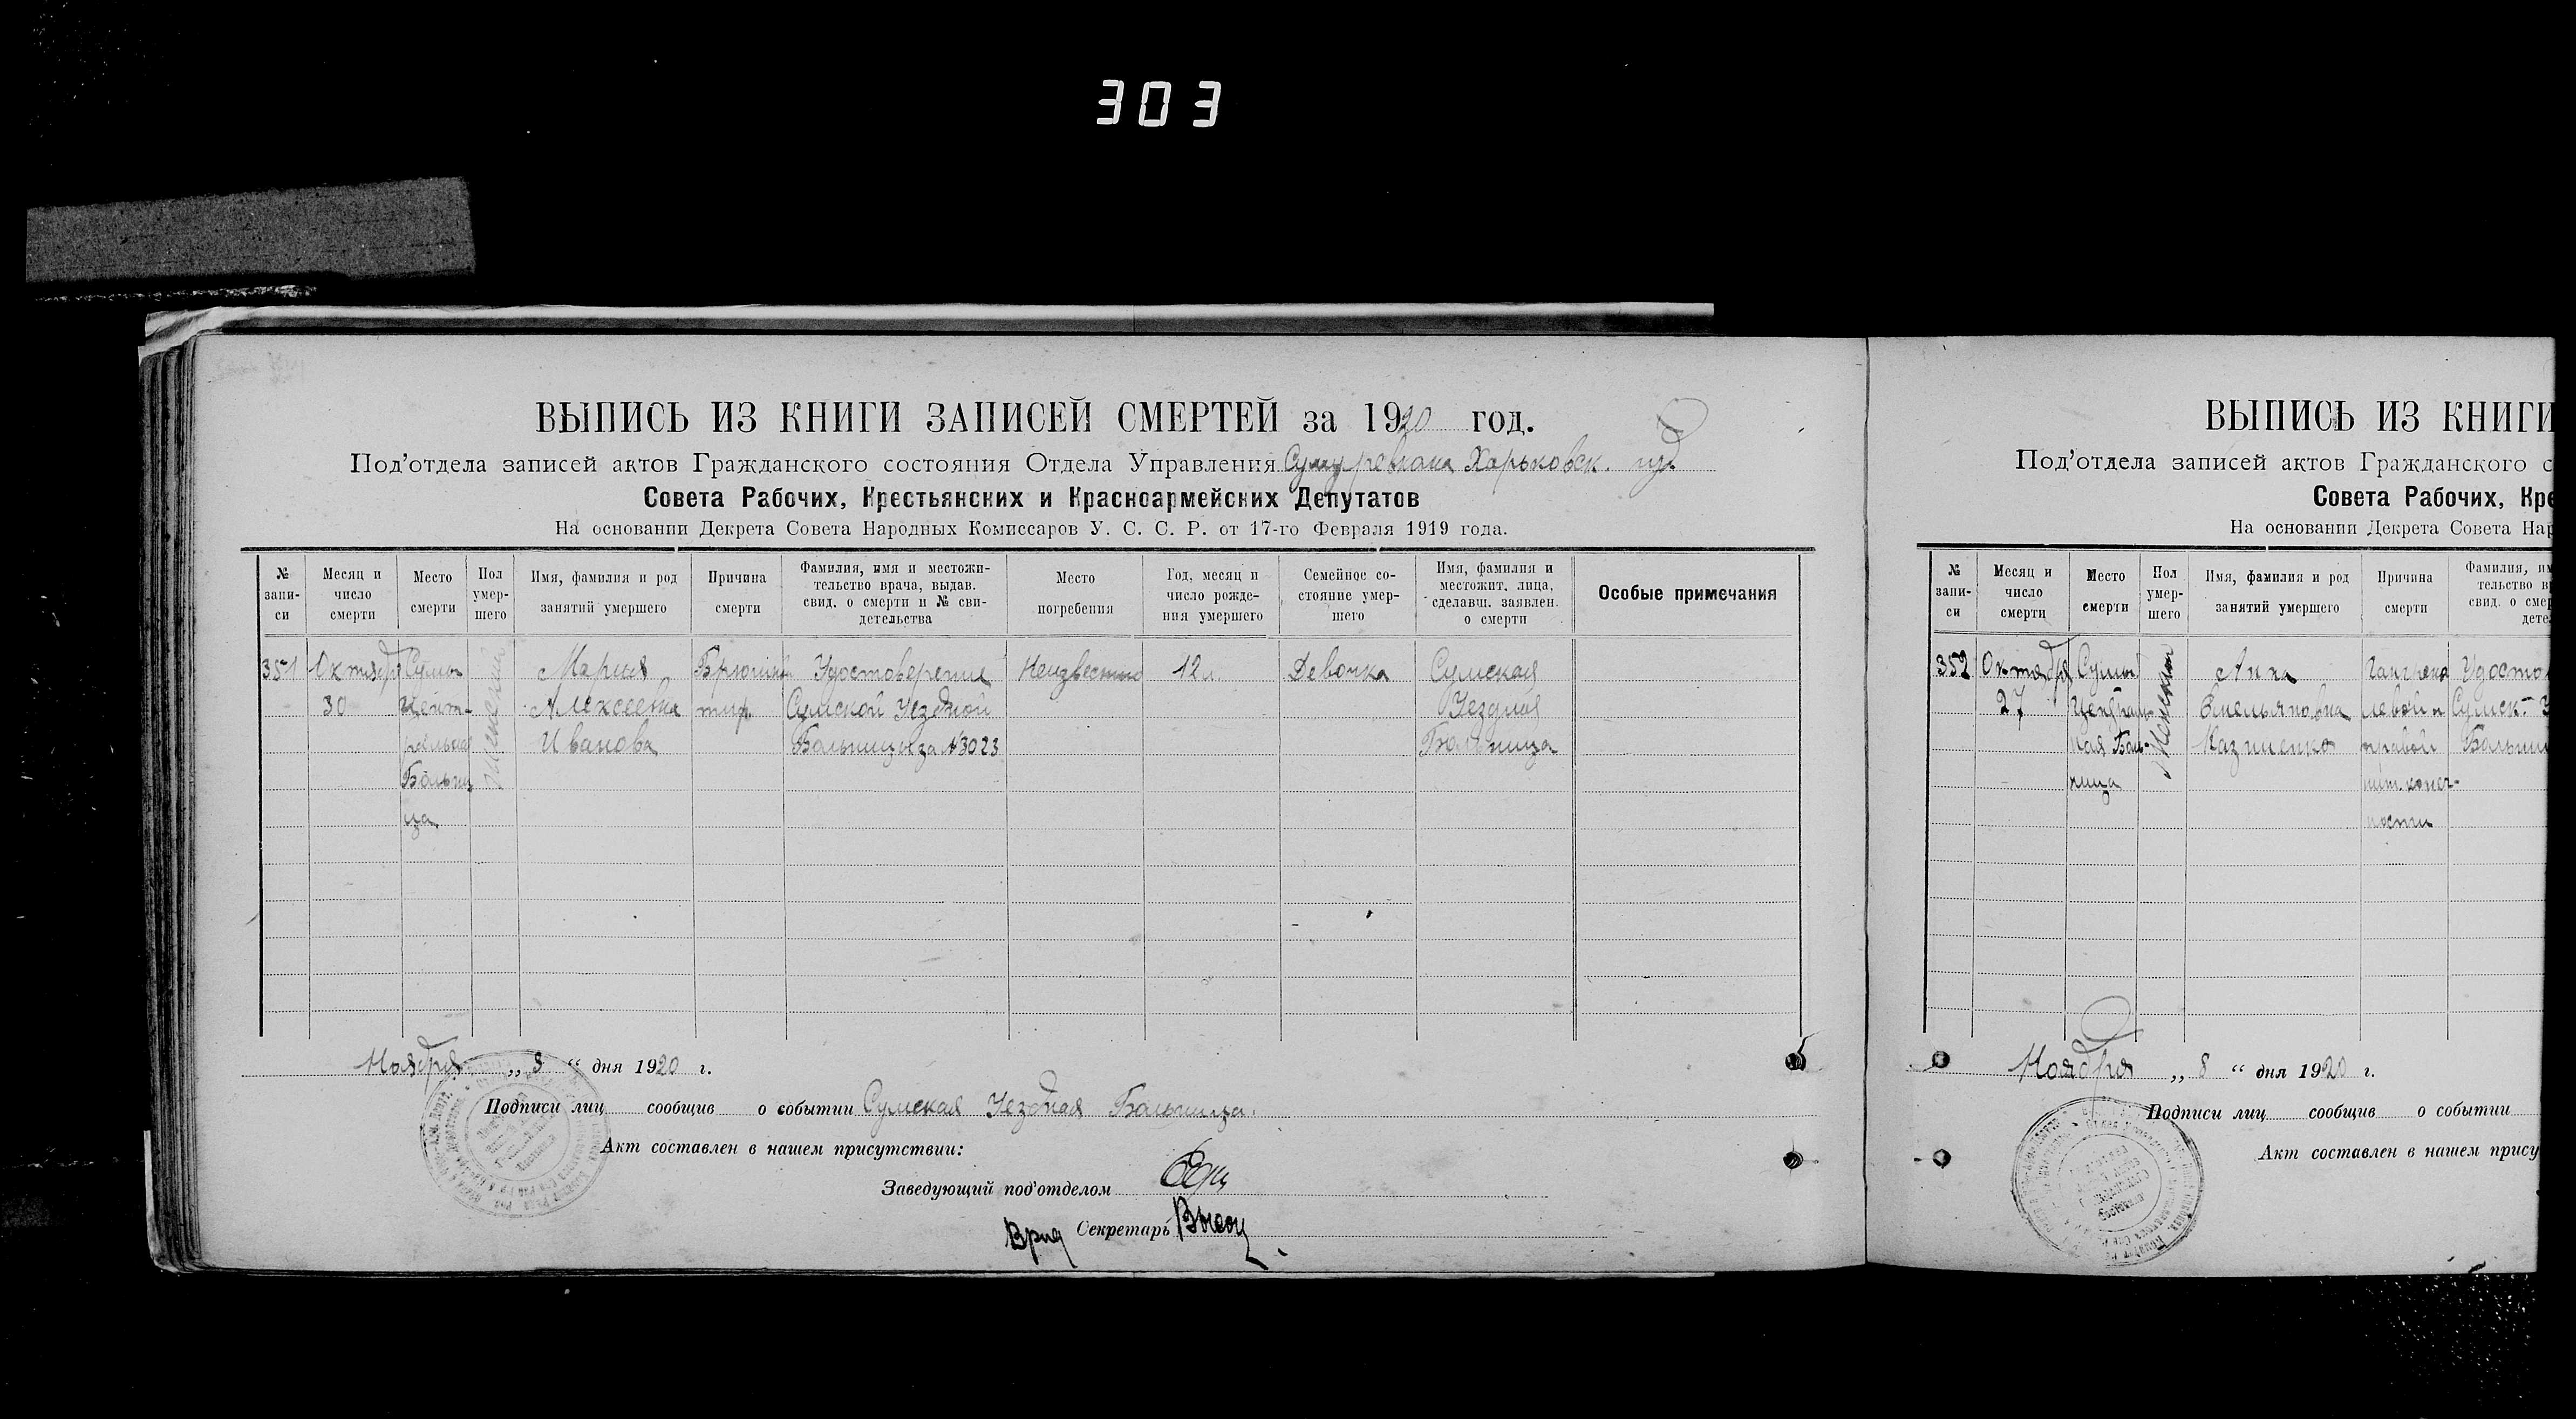 303
ВЫПИСЬ ИЗ КНИГИ ЗАПИСЕЙ СМЕРТЕЙ за 1920 год.
Под'отдела записей актов Гражданского состояния Отдела Управления Харьковск.
Совета Рабочих, Крестьянских и Красноармейских Депутатов
На основании Декрета Совета Народных Комиссаров У. С. С. Р. от 17-го Февраля 1919 года.
№ запи-
си
Месяц и
число
смерти
Место
смерти
Пол
умер-
шего
Имя, фамилия и род
занятий умершего
Причина
смерти
Фамилия, имя и местожи-
тельство врача, выдав.
свид. о смерти и № сви-
детельства
Место
погребения
Год, месяц и
число рожде-
ния умершего
Семейное со-
стояние умер-
шего
Имя, фамилия и
местожит. лица,
сделавш. заявлен.
о смерти
Особые примечания
351
Октябр
30
Сумы
Цент-
ральная
Больни
ца
Женский
Мария
Алексеевна
Иванова
Брюшн
тиф.
Удостоверение
Сумской Уездной
Больницы за № 3023
Неизвестно
12 л.
Девочка
Сумская
Уездная
Больница
Ноября „ 8 “ дня 1920 г.
Подписи лиц сообщив о событии Сумская Уездная Больница.
Акт составлен в нашем присутствии:
Заведующий под'отделом
Врид Секретарь
ВЫПИСЬ ИЗ КНИГИ
Под'отдела записей актов Гражданского с
Совета Рабочих, Кре
На основании Декрета Совета Нар
№
запи-
си
Месяц и
число
смерти
Место
смерти
Пол
умер-
шего
Имя, фамилия и род
занятий умершего
Причина
смерти
Фамилия, им
тельство в
свид. о смер
дете
352
Октября
27
Сумы
Централь
ная Боль-
ница
Женский
Анна
Емельяновна
Гангрена
левой и
правой
ниж. конеч-
ности
Удосто
Сумск.
Больни
Ноября „ 8 “ дня 1920 г.
Подписи лиц сообщив о событии
Акт составлен в нашем прису